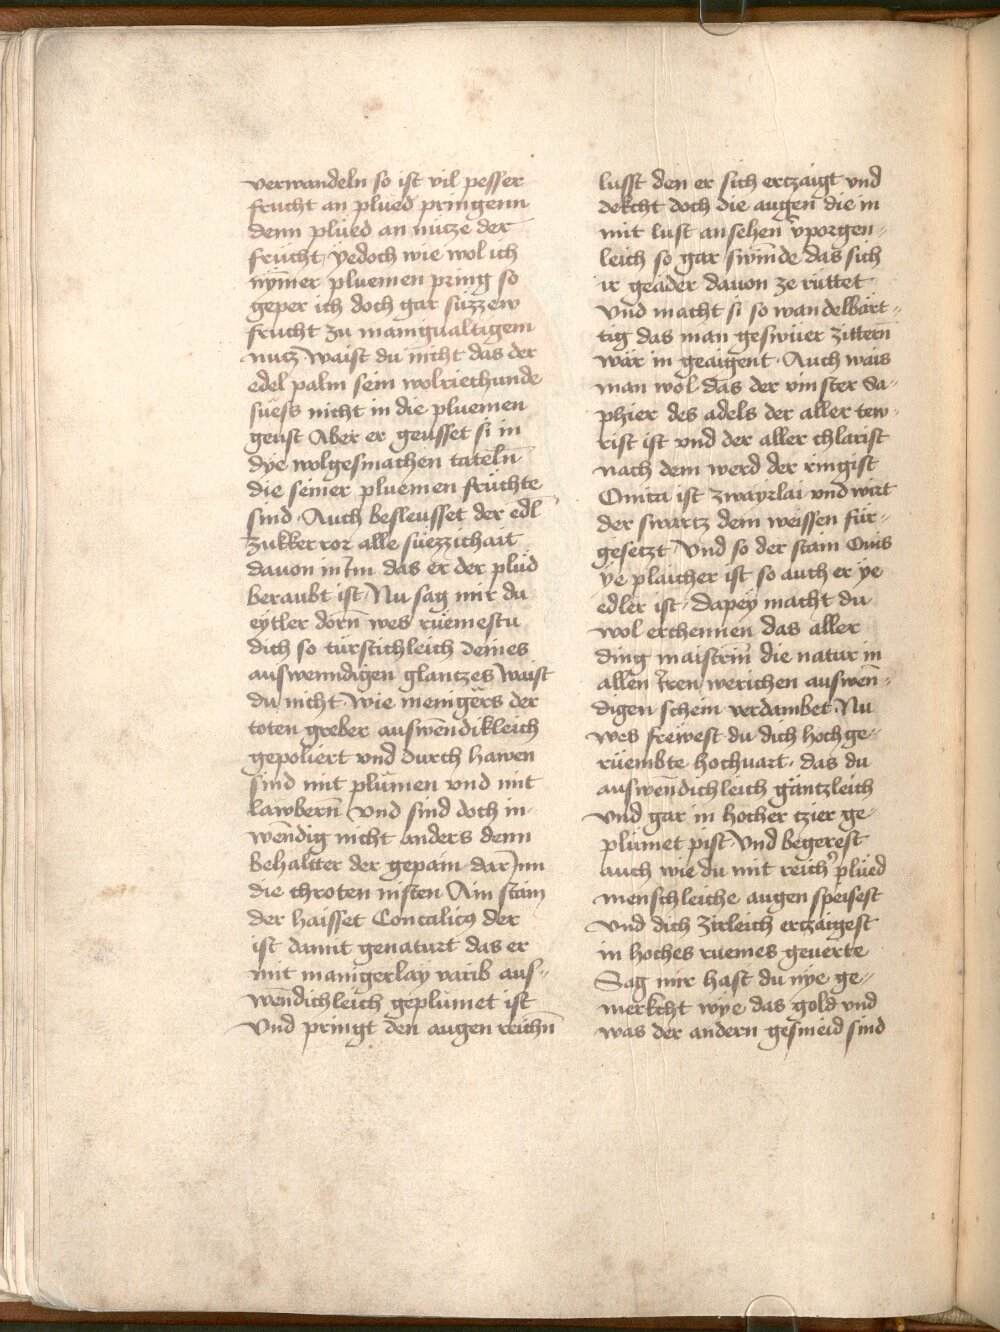 verwandeln so ist vil pesser
frucht an plued pringenn
denn plüed an nücze der
frücht yedoch wie wol ich
nym̄er pluemen pring so
geper ich doch gar süzzew
frucht zu manigualtigem
nutz Waist du nicht das der
edel palm sein wolriechunde
suess nicht in die pluemen
geust Aber er geusset si in
dye wolgesmachen tateln̄
die seiner pluemen früchte
sind Auch besleusset der edl
zukker ror alle süezzichait
dauon in Im das er der plüd
beraubt ist Nu sag mir du
eytler dorn̄ wes rüemestu
dich so türstichleich deines
auswenndigen glanczes Waist
du nicht wie menigers der
toten greber auswēndikleich
gepoliert vnd durch hawen
sind mit plümen vnd mit
lawbern̄ Vnd sind doch in-
wēndig nicht anders denn
behaltter der gepain darInn
die chroten nisten Ain stain
der haisset Concalicus der
ist damit genaturt das er
mit manigerlay varib aus-
wēndichleich geplümet ist
Vnd pringt den augen reichn̄
lusst den er sich erczaigt vnd
dekcht doch die augen die in
mit lust ansehen v̓porgen-
leich so gar swīnde das sich
ir geäder dauon ze rüttet
Vnd macht si so wandelbärt-
tig das man geswüer zittern̄
wär in geaigent Auch wais
man wol das der vinster Sa-
phier des adels der aller tew-
rist ist vnd der aller chlarist
nach dem werd der ringist
Onita ist zwayrlai vnd wirt
der swartz dem weissen für-
gesetzt Vnd so der stain Onis
ye plaicher ist so auch er ye
edler ist Dapey macht du
wol erchennen das aller
ding maistrin̄ die natur in
allen Iren werichen auswēn-
digen schein verdambet Nu
wes frewest du dich hochge-
rüembte hochuart das du
auswēndichleich gäntzleich
vnd gar in hocher tzier ge-
plümet pist Vnd begerest
auch wie du mit reich̓ plüed
menschleiche augen speisest
Vnd dich zirleich erczaigest
in hoches ruemes geuerte
Sag mir hast du nye ge-
merkcht wye das gold vnd
was der andern gesmeid sind